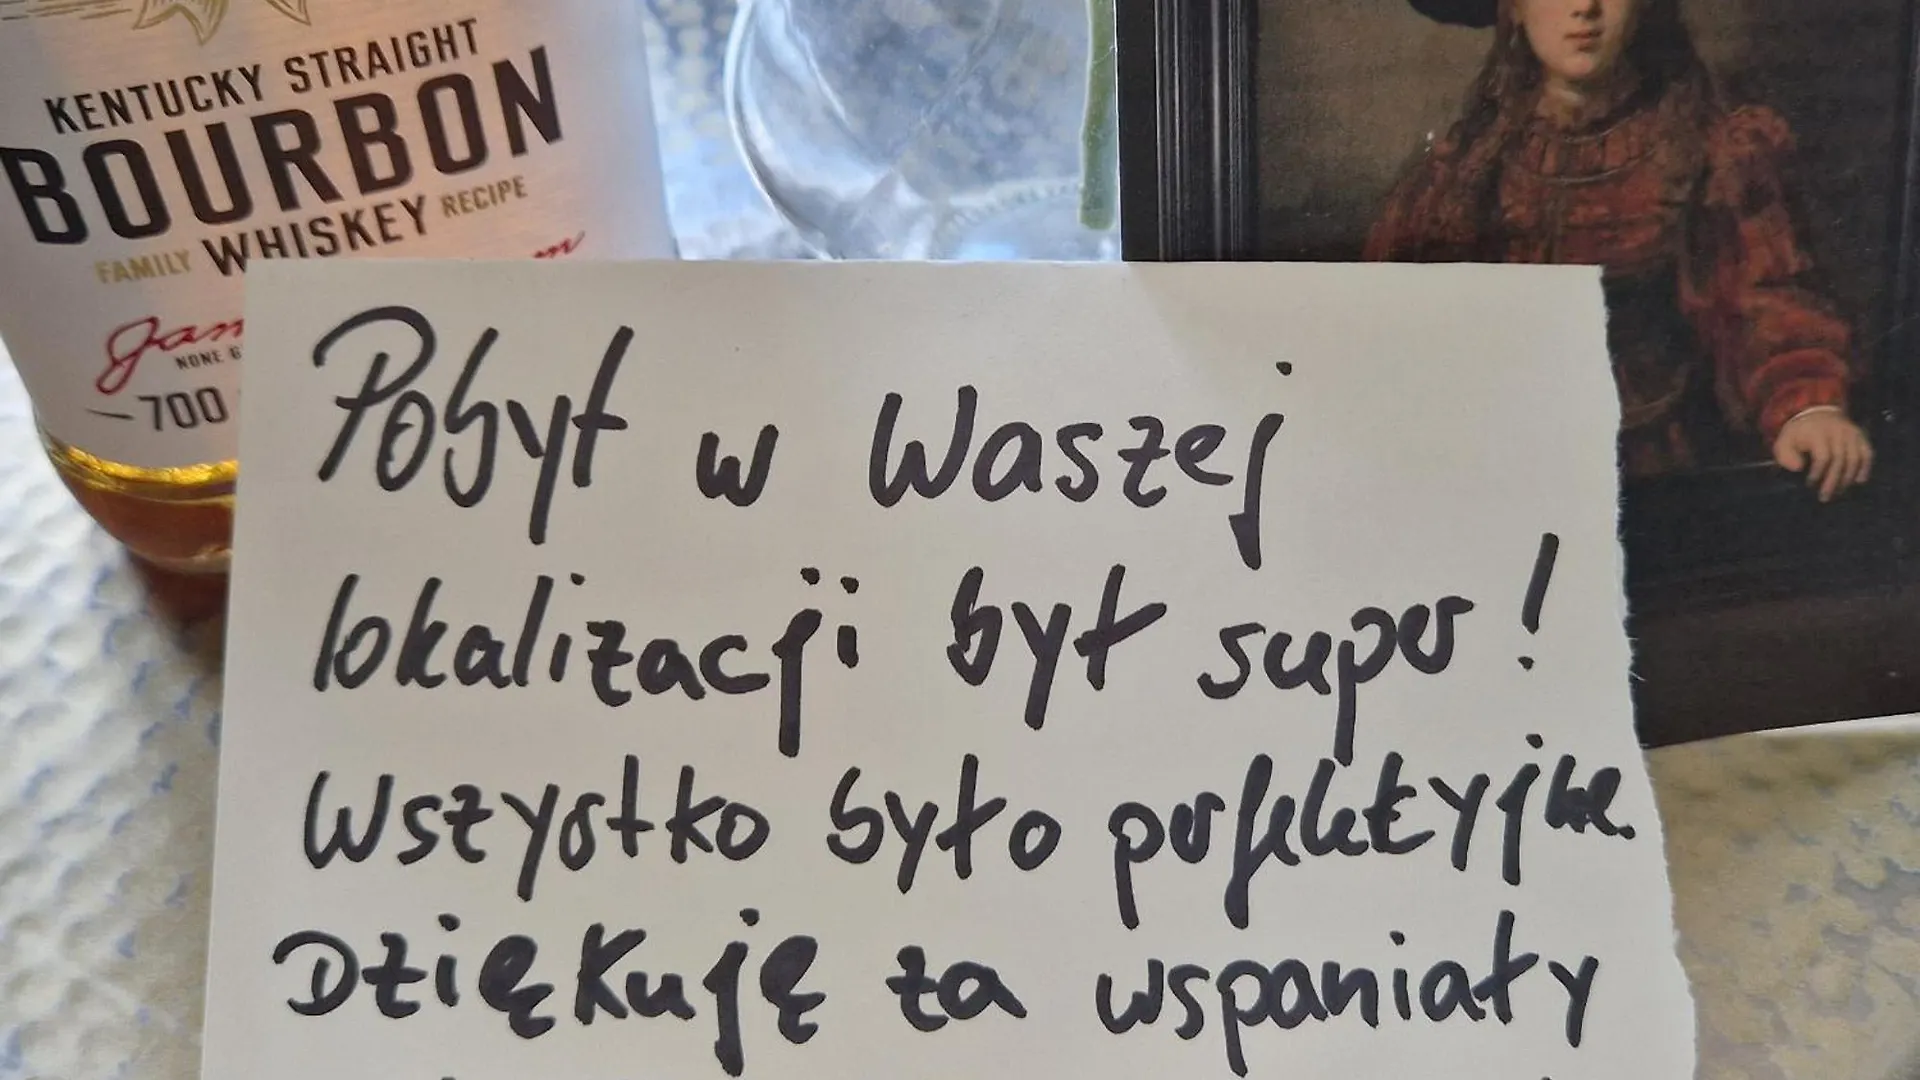 KENTUCKY STRAIGHT
BOURBON
FAMILY WHISKEY RECIPE
NONE
700
Pobyt w Waszej
lokalizacji był super!
Wszystko było perfektyjne.
Dziękuję za wspaniały